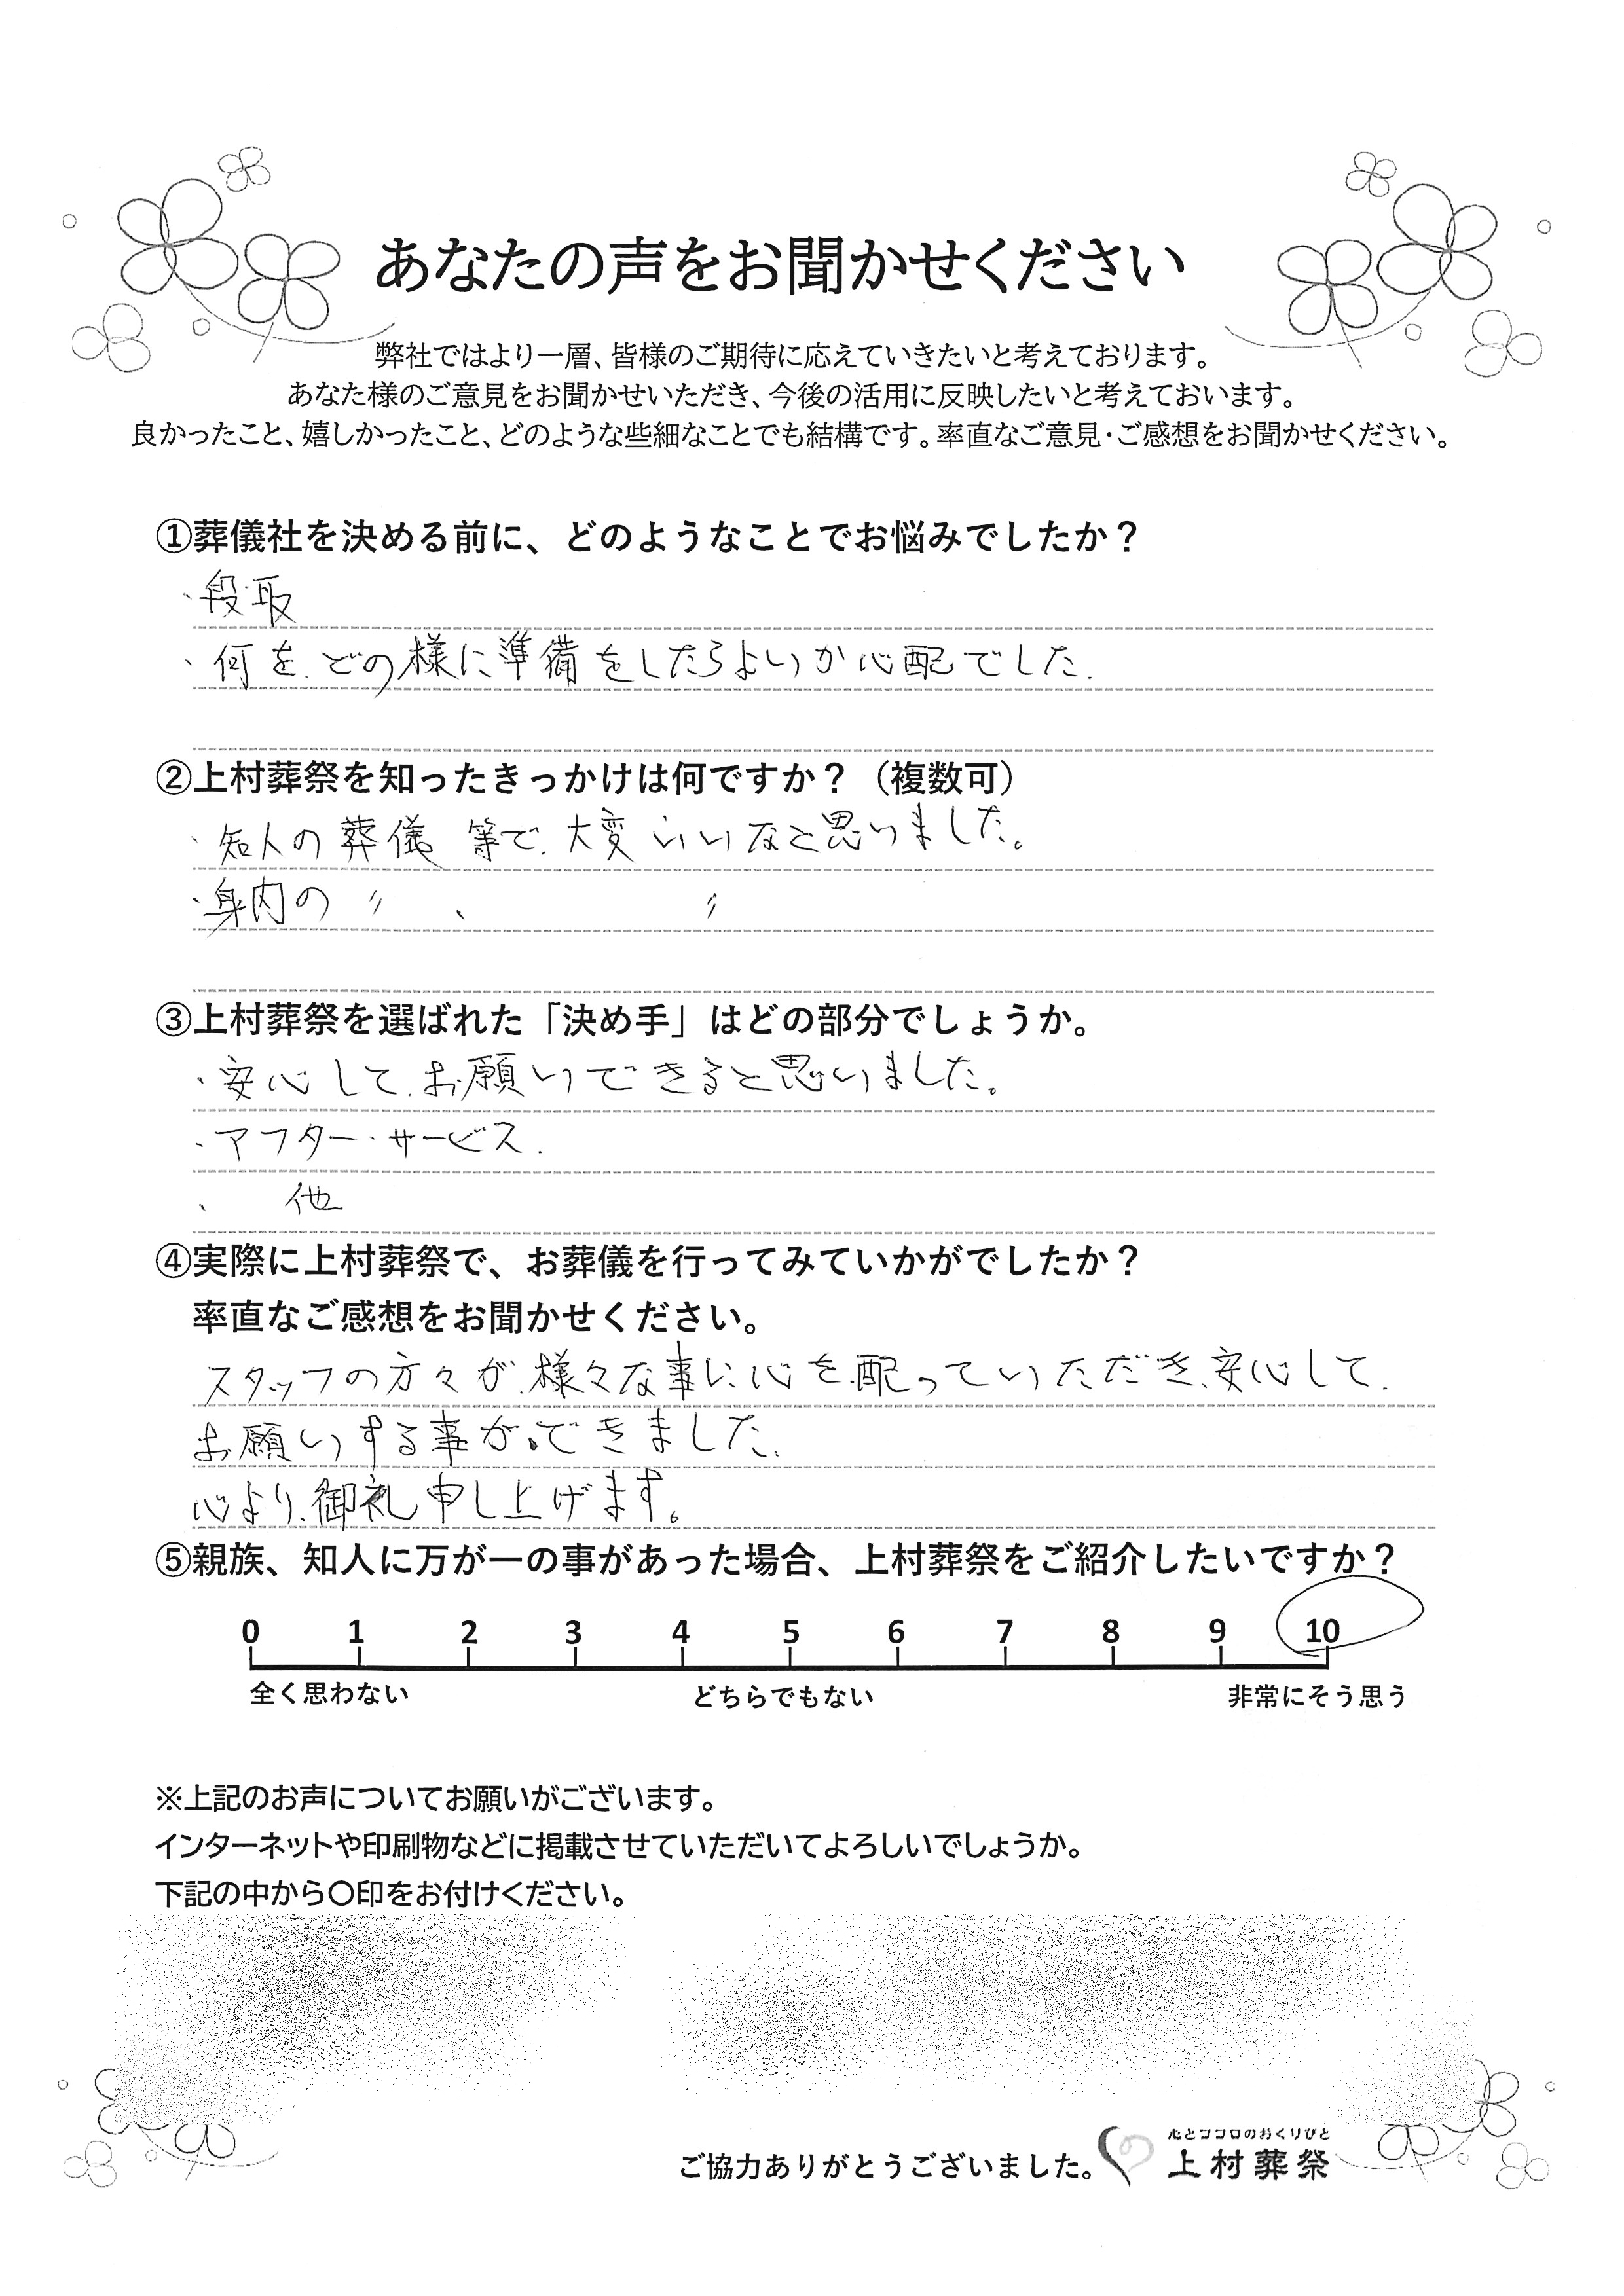 あなたの声をお聞かせください
弊社ではより一層、皆様のご期待に応えていきたいと考えております。
あなた様のご意見をお聞かせいただき、今後の活用に反映したいと考えておいます。
良かったこと、嬉しかったこと、どのような些細なことでも結構です。率直なご意見・ご感想をお聞かせください。
①葬儀社を決める前に、どのようなことでお悩みでしたか？
・段取
・何を、どの様に準備をしたらよいか心配でした.
②上村葬祭を知ったきっかけは何ですか？（複数可）
・知人の葬儀 等で、大変いいなと思いました。
・身内の 〃 、 〃
③上村葬祭を選ばれた「決め手」はどの部分でしょうか。
・安心して、お願いできると思いました。
・アフター・サービス.
・ 他
④実際に上村葬祭で、お葬儀を行ってみていかがでしたか？
率直なご感想をお聞かせください。
スタッフの方々が、様々な事に、心を配っていただき、安心して、
お願いする事ができました.
心より、御礼申し上げます。
⑤親族、知人に万が一の事があった場合、上村葬祭をご紹介したいですか？
0 1 2 3 4 5 6 7 8 9 10
全く思わない どちらでもない 非常にそう思う
※上記のお声についてお願いがございます。
インターネットや印刷物などに掲載させていただいてよろしいでしょうか。
下記の中から〇印をお付けください。
心とココロのおくりびと
ご協力ありがとうございました。 上村葬祭